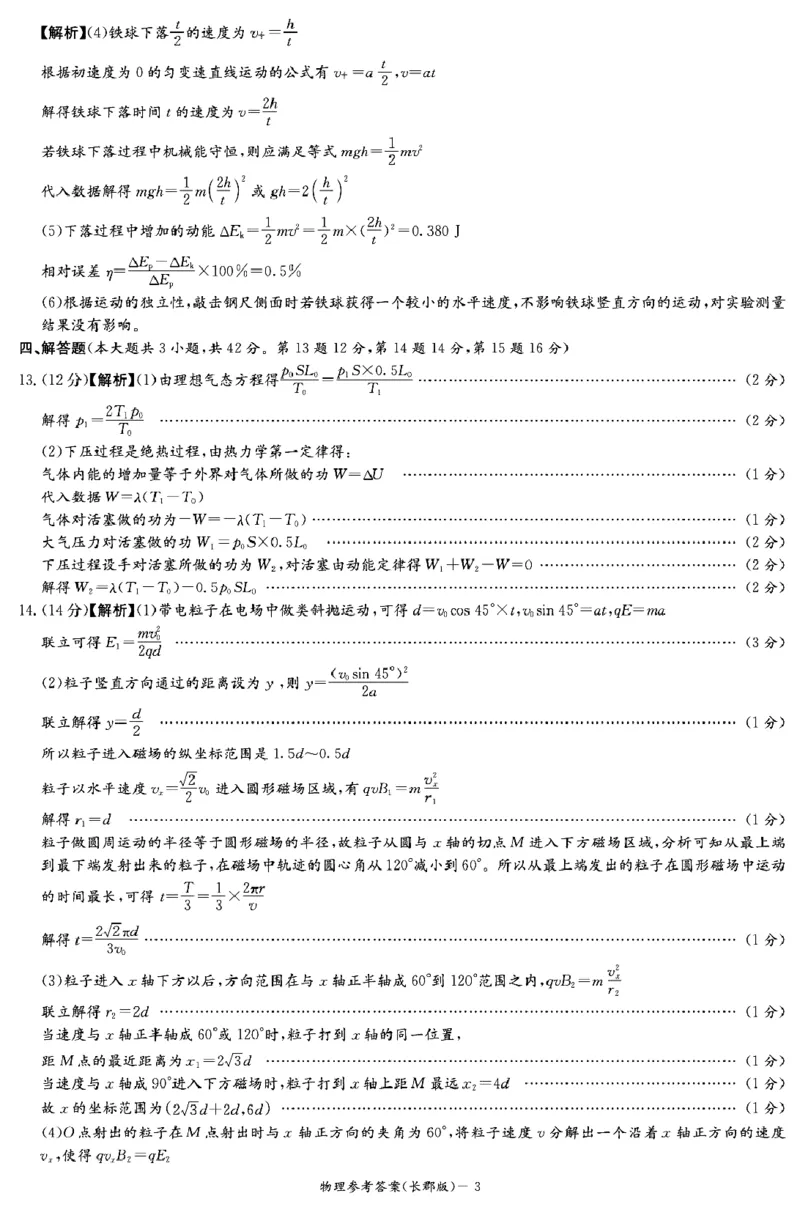 【解析】(4)铁球下落t/2的速度为v中=h/t
根据初速度为0的匀变速直线运动的公式有v中=a t/2,v=at
解得铁球下落时间t的速度为v=2h/t
若铁球下落过程中机械能守恒,则应满足等式mgh=1/2mv²
代入数据解得mgh=1/2m(2h/t)²或gh=2(h/t)²
(5)下落过程中增加的动能ΔEk=1/2mv²=1/2m×(2h/t)²=0.380 J
相对误差η=(ΔEp-ΔEk)/ΔEp×100%=0.5%
(6)根据运动的独立性,敲击钢尺侧面时若铁球获得一个较小的水平速度,不影响铁球竖直方向的运动,对实验测量
结果没有影响。
四、解答题(本大题共3小题,共42分。第13题12分,第14题14分,第15题16分)
13.(12分)【解析】(1)由理想气态方程得p₀SL₀/T₀=p₁S×0.5L₀/T₁ ……(2分)
解得p₁=2T₁p₀/T₀ ……(2分)
(2)下压过程是绝热过程,由热力学第一定律得:
气体内能的增加量等于外界对气体所做的功W=ΔU ……(1分)
代入数据W=λ(T₁-T₀)
气体对活塞做的功为-W=-λ(T₁-T₀)……(1分)
大气压力对活塞做的功W₁=p₀S×0.5L₀ ……(2分)
下压过程设手对活塞所做的功为W₂,对活塞由动能定律得W₁+W₂-W=0 ……(2分)
解得W₂=λ(T₁-T₀)-0.5p₀SL₀ ……(2分)
14.(14分)【解析】(1)带电粒子在电场中做类斜抛运动,可得d=v₀cos 45°×t,v₀sin 45°=at,qE=ma
联立可得E₁=mv₀²/2qd ……(3分)
(2)粒子竖直方向通过的距离设为y,则y=(v₀sin 45°)²/2a
联立解得y=d/2 ……(1分)
所以粒子进入磁场的纵坐标范围是1.5d~0.5d
粒子以水平速度vₓ=√2/2v₀进入圆形磁场区域,有qvB₁=m vₓ²/r₁
解得r₁=d ……(1分)
粒子做圆周运动的半径等于圆形磁场的半径,故粒子从圆与x轴的切点M进入下方磁场区域,分析可知从最上端
到最下端发射出来的粒子,在磁场中轨迹的圆心角从120°减小到60°。所以从最上端发出的粒子在圆形磁场中运动
的时间最长,可得t=T/3=1/3×2πr/v
解得t=2√2πd/3v₀……(1分)
(3)粒子进入x轴下方以后,方向范围在与x轴正半轴成60°到120°范围之内,qvB₂=m vₓ²/r₂
联立解得r₂=2d ……(1分)
当速度与x轴正半轴成60°或120°时,粒子打到x轴的同一位置,
距M点的最近距离为x₁=2√3d ……(1分)
当速度与x轴成90°进入下方磁场时,粒子打到x轴上距M最远x₂=4d ……(1分)
故x的坐标范围为(2√3d+2d,6d) ……(1分)
(4)O点射出的粒子在M点射出时与x轴正方向的夹角为60°,将粒子速度v分解出一个沿着x轴正方向的速度
vₓ,使得qvₓB₂=qE₂
物理参考答案(长郡版)- 3